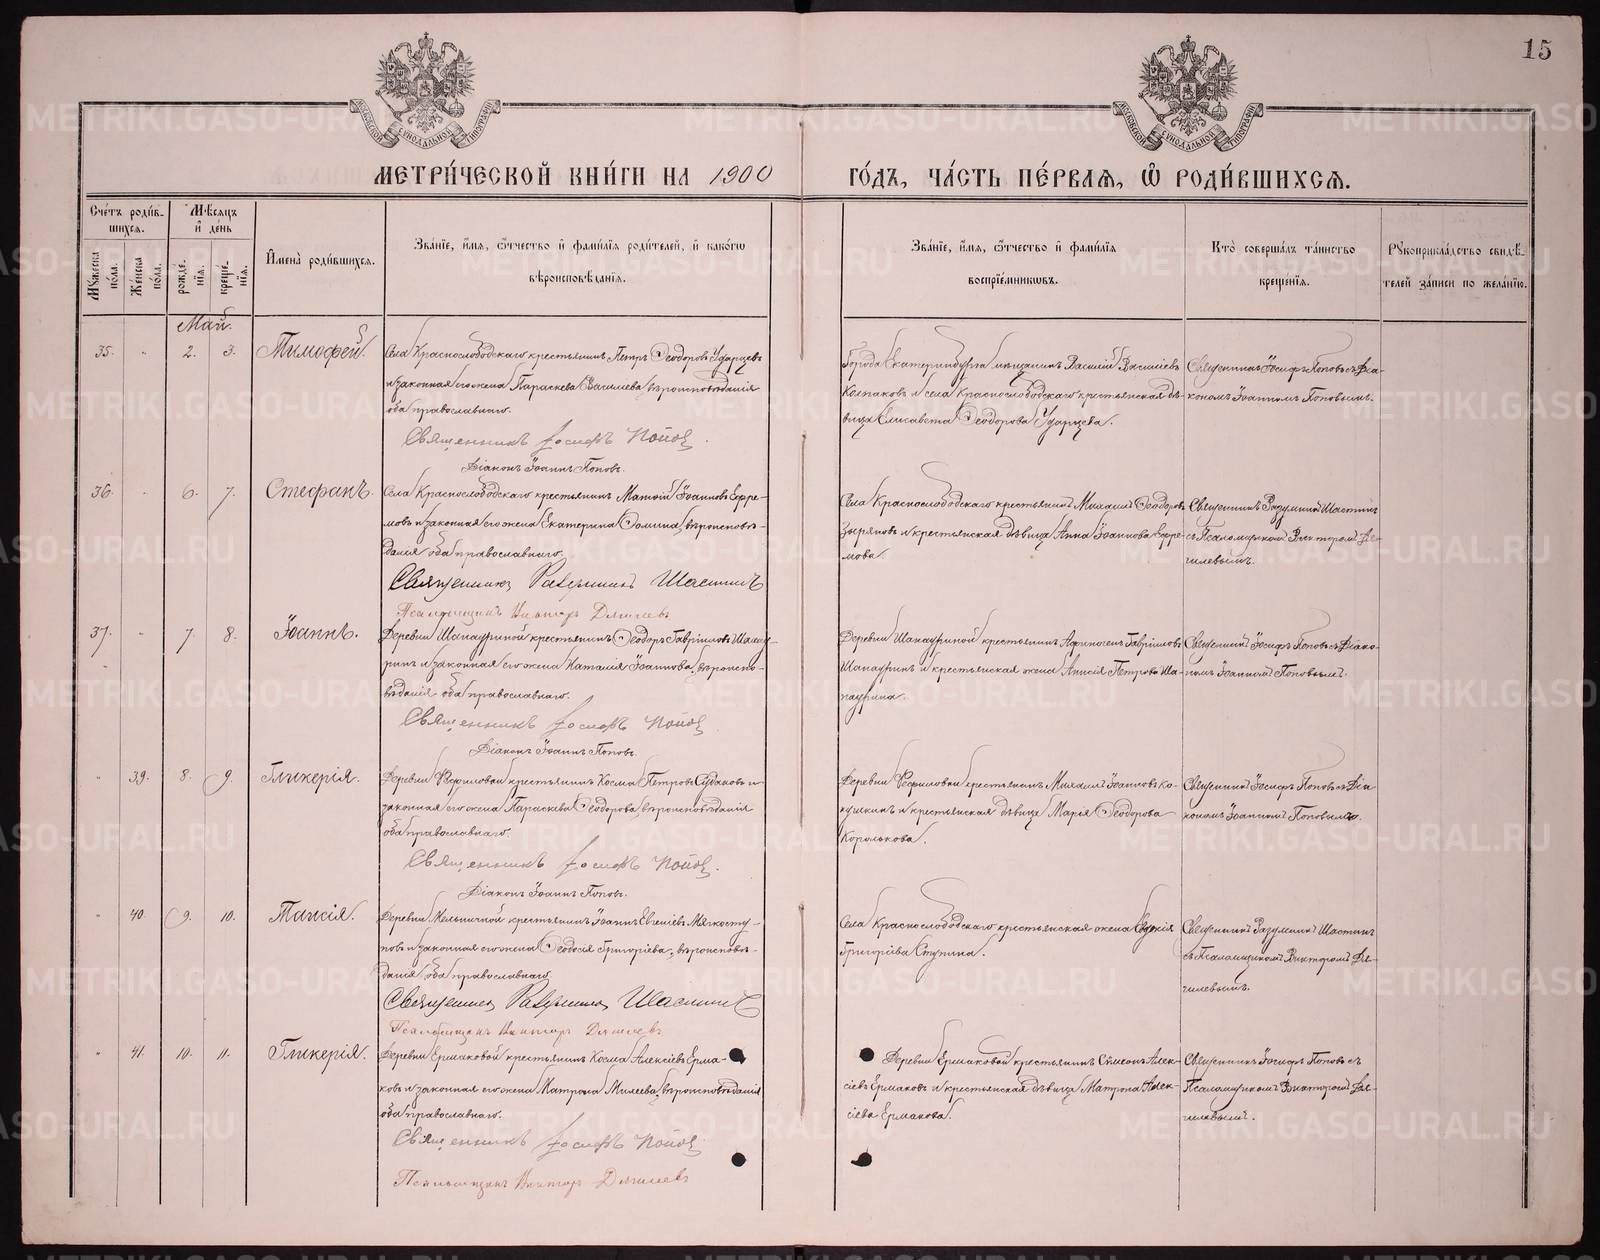 15
МОСКОВСКОЙ СѴНОДАЛЬНОЙ ТИПОГРАФІИ
МОСКОВСКОЙ СѴНОДАЛЬНОЙ ТИПОГРАФІИ
МЕТРИ́ЧЕСКОЙ КНИ́ГИ НА 1900 ГО́ДЪ, ЧА́СТЬ ПЕ́РВАѦ, Ѡ РОДИ́ВШИХСѦ.
Сче́тъ роди́в-
шихсѧ.
Мѣ́сѧцъ
и҆ де́нь
И҆мена̀ роди́вшихсѧ.
Зва́нїе, и҆́мѧ, ѻ҆́тчество и҆ фами́лїѧ роди́телей, и҆ како́гѡ
вѣроисповѣ́данїѧ.
Зва́нїе, и҆́мѧ, ѻ҆́тчество и҆ фами́лїѧ
воспрїе́мникѡвъ.
Кто̀ соверша́лъ та́инство
креще́нїѧ.
Рꙋкоприкла́дство свидѣ́-
телей за́писи по жела́нїю.
Мꙋ́жеска по́ла.
Же́нска по́ла.
рожде́-нїѧ.
креще́-нїѧ.
Май.
35. " 2. 3. Тимофей.
Села Краснослободскаго крестьянинъ Петръ Ѳеодоровъ Ударцевъ
и законная его жена Параскева Васильева, вѣроисповѣданія
оба православнаго.
Священникъ Іосифъ Попов.
Діаконъ Іоаннъ Поповъ.
Города Екатеринбурга мѣщанинъ Василій Васильевъ
Колпаковъ и села Краснослободскаго крестьянская дѣ-
вица Елисавета Ѳеодорова Ударцева.
Священникъ Іосифъ Поповъ съ Діа-
кономъ Іоанномъ Поповымъ.
36. " 6. 7. Стефанъ.
Села Краснослободскаго крестьянинъ Матѳій Іоанновъ Ефре-
мовъ и законная его жена Екатерина Ѳомина, вѣроисповѣ-
данія оба православнаго.
Священникъ Разумникъ Шастинъ
Псаломщикъ Викторъ
Села Краснослободскаго крестьянинъ Михаилъ Ѳеодоровъ
Зыряновъ и крестьянская дѣвица Анна Іоаннова Ефре-
мова.
Священникъ Разумникъ Шастинъ
съ Псаломщикомъ Викторомъ Дя-
гилевымъ.
37. " 7. 8. Іоаннъ.
Деревни Шапауриной крестьянинъ Ѳеодоръ Гавріиловъ Шапау-
ринъ и законная его жена Наталія Іоаннова, вѣроиспо-
вѣданія оба православнаго.
Священникъ Іосифъ Попов
Діаконъ Іоаннъ Поповъ.
Деревни Шапауриной крестьянинъ Афиногенъ Гавріиловъ
Шапауринъ и крестьянская жена Анисія Петрова Ша-
паурина.
Священникъ Іосифъ Поповъ съ Діако-
номъ Іоанномъ Поповымъ.
" 39. 8. 9. Гликерія.
Деревни крестьянинъ Косма Петровъ Судаковъ и
законная его жена Параскева Ѳеодорова, вѣроисповѣданія
оба православнаго.
Священникъ Іосифъ Попов.
Діаконъ Іоаннъ Поповъ.
Деревни крестьянинъ Михаилъ Іоанновъ Ко-
и крестьянская дѣвица Марія Ѳеодорова
Королькова.
Священникъ Іосифъ Поповъ съ Діа-
кономъ Іоанномъ Поповымъ.
" 40. 9. 10. Таисія.
Деревни Мельничной крестьянинъ Іоаннъ Евгеніевъ Мягкосту-
повъ и законная его жена Ѳеодосія Григоріева, вѣроисповѣ-
данія оба православнаго.
Священникъ Разумникъ Шастинъ
Псаломщикъ Викторъ
Села Краснослободскаго крестьянская жена
Григоріева Ступина.
Священникъ Разумникъ Шастинъ
съ Псаломщикомъ Викторомъ Дя-
гилевымъ.
" 41. 10. 11. Гликерія.
Деревни Ермаковой крестьянинъ Косма Алексіевъ Ерма-
ковъ и законная его жена Матрона Милеева, вѣроисповѣданія
оба православнаго.
Священникъ Іосифъ Попов
Псаломщикъ Викторъ
Деревни Ермаковой крестьянинъ Симеонъ Алек-
сіевъ Ермаковъ и крестьянская дѣвица Матрона Алек-
сіева Ермакова.
Священникъ Іосифъ Поповъ съ
Псаломщикомъ Викторомъ Дя-
гилевымъ.
METRIKI.GASO-URAL.RU